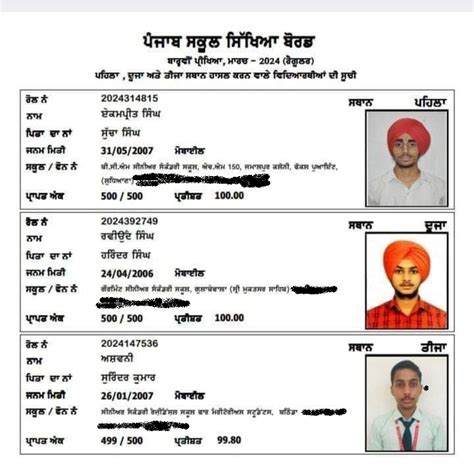 ਪੰਜਾਬ ਸਕੂਲ ਸਿੱਖਿਆ ਬੋਰਡ
ਬਾਰ੍ਹਵੀਂ ਪ੍ਰੀਖਿਆ, ਮਾਰਚ - 2024 (ਰੈਗੂਲਰ)
ਪਹਿਲਾ , ਦੂਜਾ ਅਤੇ ਤੀਜਾ ਸਥਾਨ ਹਾਸਲ ਕਰਨ ਵਾਲੇ ਵਿਦਿਆਰਥੀਆਂ ਦੀ ਸੂਚੀ
ਰੋਲ ਨੰ 2024314815 ਸਥਾਨ ਪਹਿਲਾ
ਨਾਮ ਏਕਮਪ੍ਰੀਤ ਸਿੰਘ
ਪਿਤਾ ਦਾ ਨਾਂ ਸੁੱਚਾ ਸਿੰਘ
ਜਨਮ ਮਿਤੀ 31/05/2007 ਮੋਬਾਈਲ
ਸਕੂਲ / ਫੋਨ ਨੰ ਬੀ.ਸੀ.ਐਮ ਸੀਨੀਅਰ ਸੈਕੰਡਰੀ ਸਕੂਲ, ਐਚ.ਐਮ 150, ਜਮਾਲਪੁਰ ਕਲੋਨੀ, ਫੋਕਲ ਪੁਆਇੰਟ,
(ਲੁਧਿਆਣਾ)
ਪ੍ਰਾਪਤ ਅੰਕ 500 / 500 ਪ੍ਰਤੀਸ਼ਤ 100.00
ਰੋਲ ਨੰ 2024392749 ਸਥਾਨ ਦੂਜਾ
ਨਾਮ ਰਵੀਉਦੈ ਸਿੰਘ
ਪਿਤਾ ਦਾ ਨਾਂ ਹਰਿੰਦਰ ਸਿੰਘ
ਜਨਮ ਮਿਤੀ 24/04/2006 ਮੋਬਾਈਲ
ਸਕੂਲ / ਫੋਨ ਨੰ ਗੌਰਮਿੰਟ ਸੀਨੀਅਰ ਸੈਕੰਡਰੀ ਸਕੂਲ, ਗੁਲਾਬੇਵਾਲਾ (ਸ੍ਰੀ ਮੁਕਤਸਰ ਸਾਹਿਬ)
ਪ੍ਰਾਪਤ ਅੰਕ 500 / 500 ਪ੍ਰਤੀਸ਼ਤ 100.00
ਰੋਲ ਨੰ 2024147536 ਸਥਾਨ ਤੀਜਾ
ਨਾਮ ਅਸ਼ਵਨੀ
ਪਿਤਾ ਦਾ ਨਾਂ ਸੁਰਿੰਦਰ ਕੁਮਾਰ
ਜਨਮ ਮਿਤੀ 26/01/2007 ਮੋਬਾਈਲ
ਸਕੂਲ / ਫੋਨ ਨੰ ਸੀਨੀਅਰ ਸੈਕੰਡਰੀ ਰੈਜ਼ੀਡੈਂਸ਼ਲ ਸਕੂਲ ਫਾਰ ਮੈਰੀਟੋਰੀਅਸ ਸਟੂਡੈਂਟਸ, ਬਠਿੰਡਾ
ਪ੍ਰਾਪਤ ਅੰਕ 499 / 500 ਪ੍ਰਤੀਸ਼ਤ 99.80